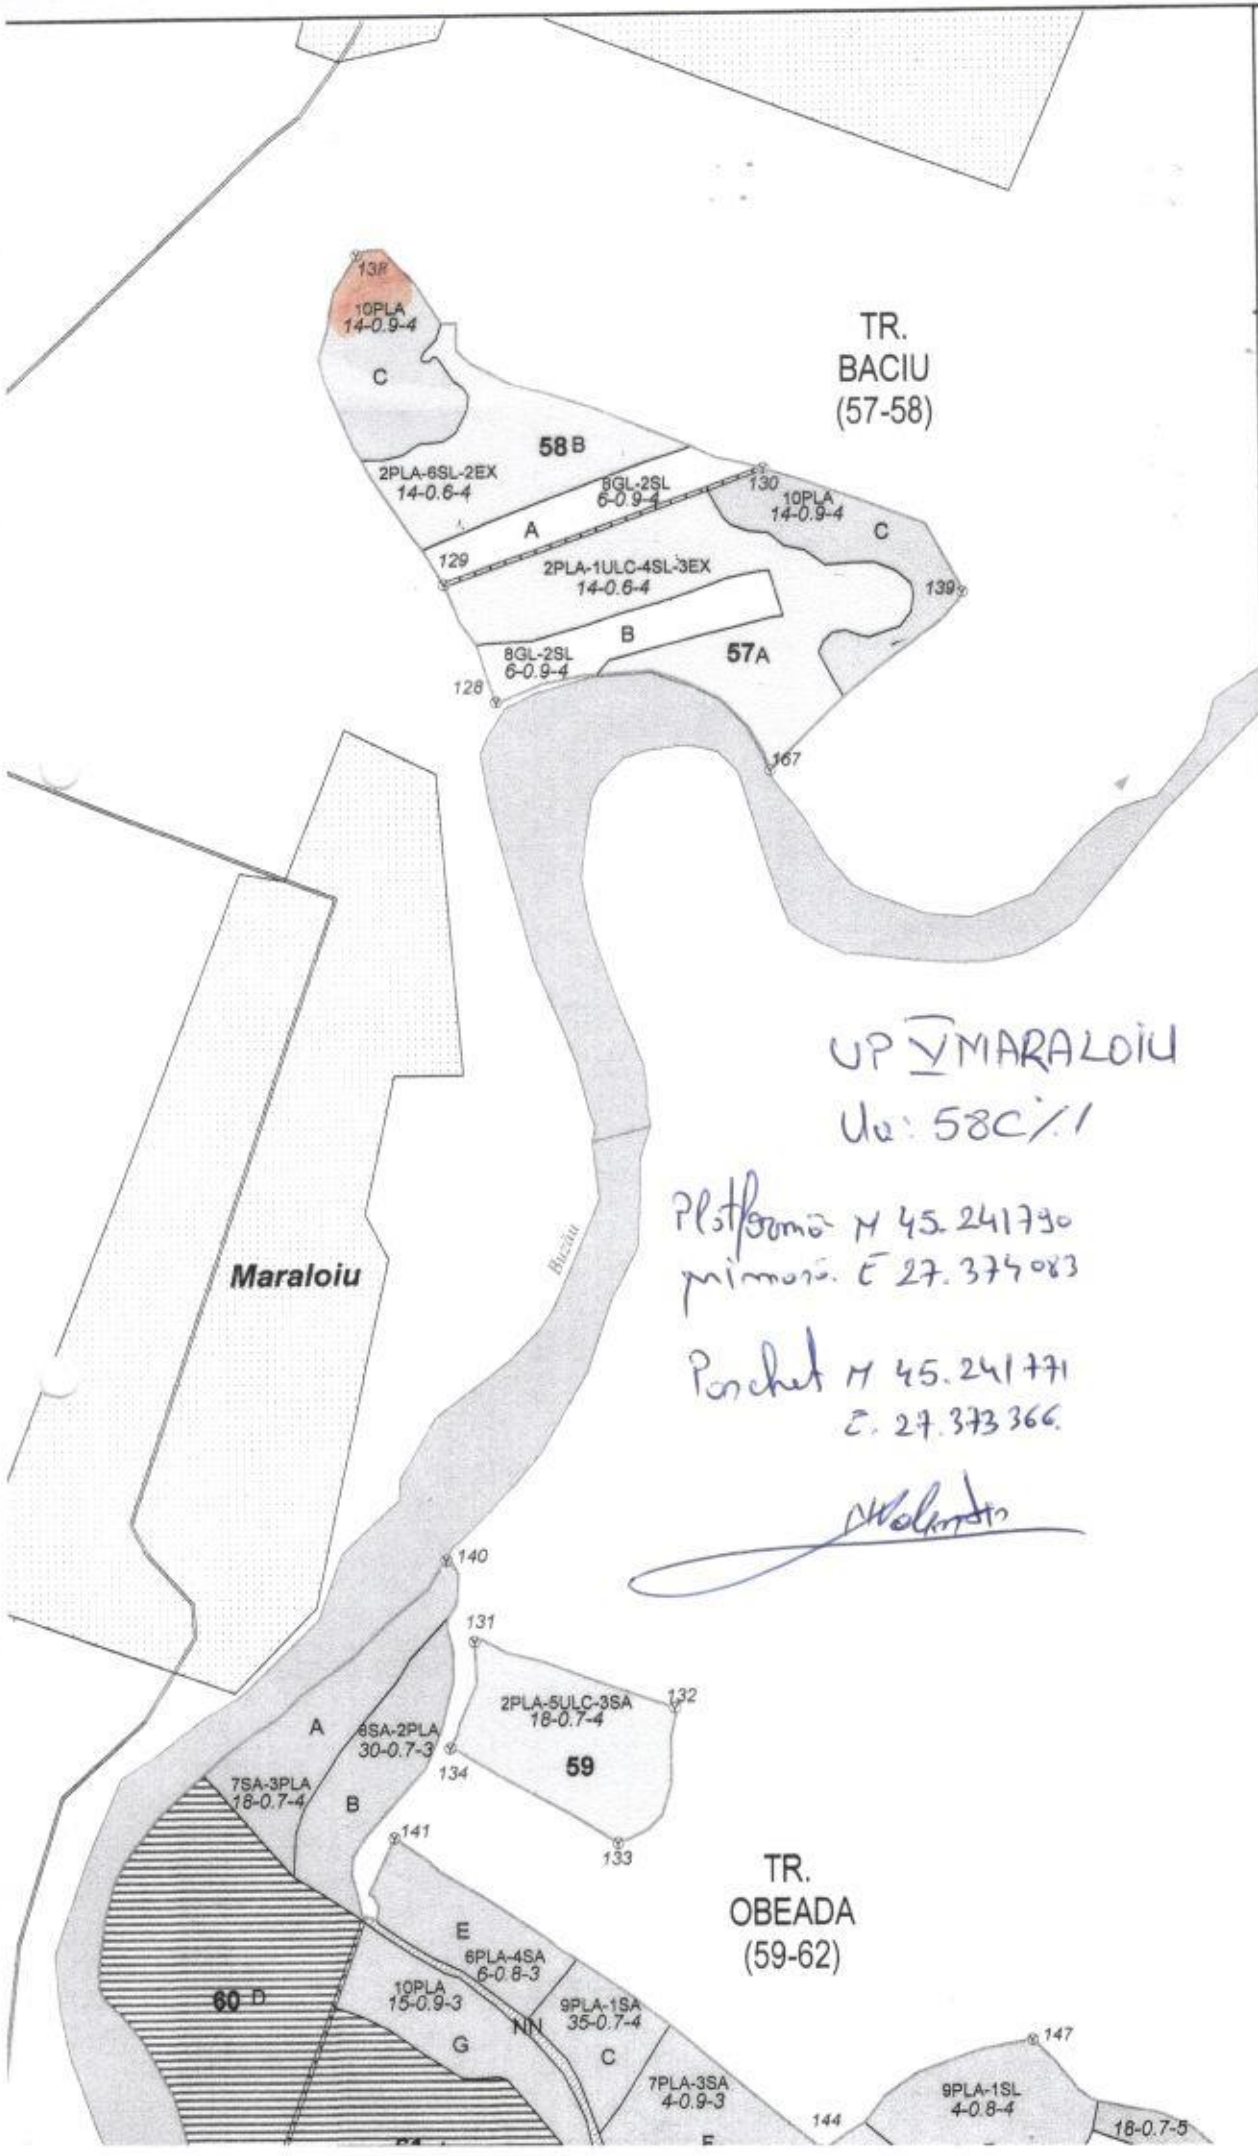 138
10PLA
14-0.9-4
C
TR.
BACIU
(57-58)
58 B
2PLA-6SL-2EX
14-0.6-4
8GL-2SL
6-0.9-4
130
10PLA
14-0.9-4
C
A
129
2PLA-1ULC-4SL-3EX
14-0.6-4
139
B
8GL-2SL
6-0.9-4
57A
128
167
UP V MARALOIU
Ua: 58C%1
Platformă N 45.241790
primară. E 27.374083
Parchet N 45.241771
E. 27.373366.
Buzău
Maraloiu
140
131
2PLA-5ULC-3SA
18-0.7-4
132
A
8SA-2PLA
30-0.7-3
134
59
7SA-3PLA
18-0.7-4
B
141
133
TR.
OBEADA
(59-62)
E
6PLA-4SA
6-0.8-3
60 D
10PLA
15-0.9-3
NN
9PLA-1SA
35-0.7-4
G
C
147
7PLA-3SA
4-0.9-3
9PLA-1SL
4-0.8-4
144
18-0.7-5